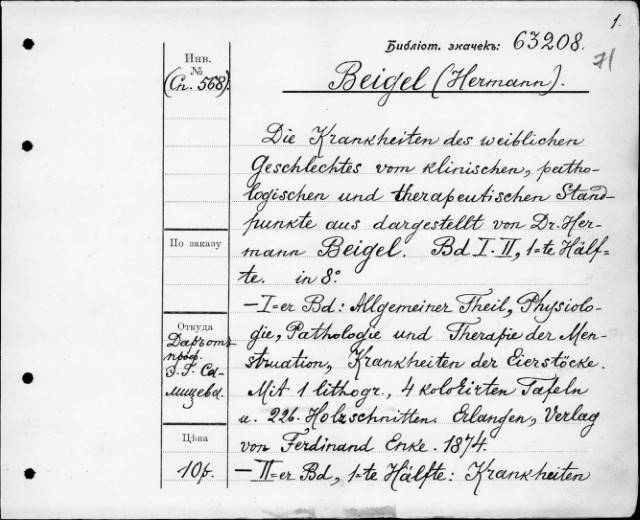 1.
Библіот. значекъ: 63208.
71
Инв.
№
(Сп. 568)
Beigel (Hermann).
Die Krankheiten des weiblichen
Geschlechtes vom klinischen, patho-
logischen und therapeutischen Stand-
punkte aus dargestellt von Dr. Her-
mann Beigel. Bd I-II, 1=te Hälf-
te. in 8°
— I=er Bd: Allgemeiner Theil, Physiolo-
gie, Pathologie und Therapie der Men-
struation, Krankheiten der Eierstöcke.
Mit 1 lithogr., 4 kolorirten Tafeln
u. 226. Holzschnitten. Erlangen, Verlag
von Ferdinand Enke. 1874.
— II=er Bd, 1=te Hälfte: Krankheiten
По заказу
Откуда
Даръ отъ
проф.
Цѣна
10р.